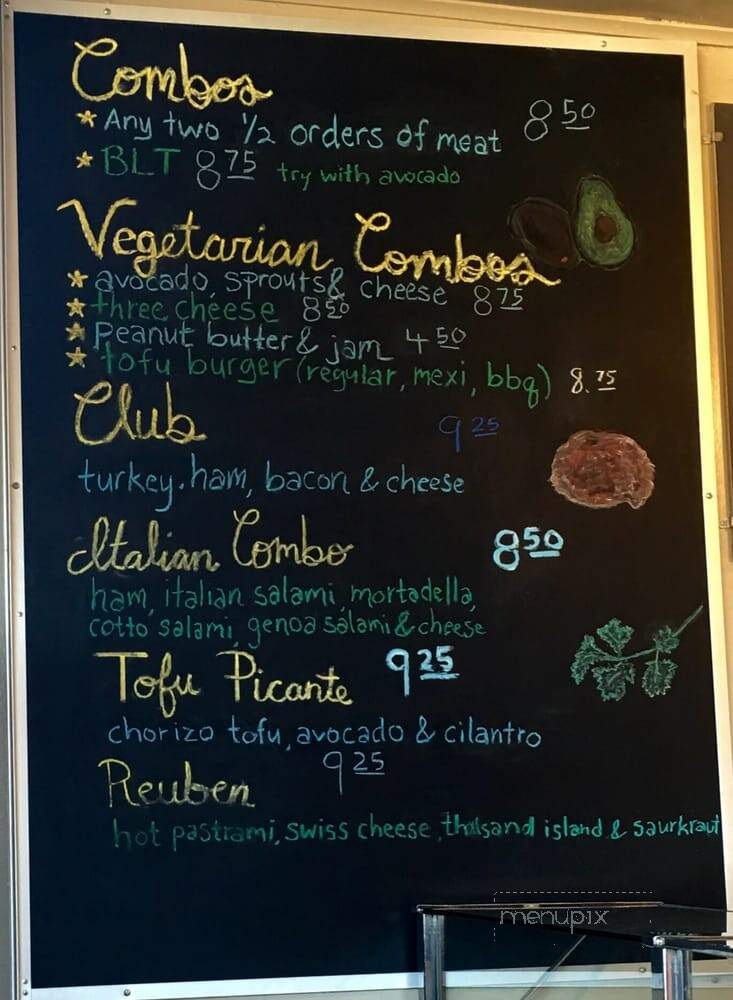 Combos
Any two 1/2 orders of meat 8 50
BLT 8 75 try with avocado
Vegetarian Combos
avocado, sprouts & cheese 8 75
three cheese 8 50
Peanut butter & jam 4 50
tofu burger (regular, mexi, bbq) 8.75
Club 9 25
turkey. ham, bacon & cheese
Italian Combo 8 50
ham, italian salami, mortadella,
cotto salami, genoa salami & cheese
Tofu Picante 9 25
chorizo tofu, avocado & cilantro
Reuben 9 25
hot pastrami, swiss cheese, thousand island & saurkraut
menupix